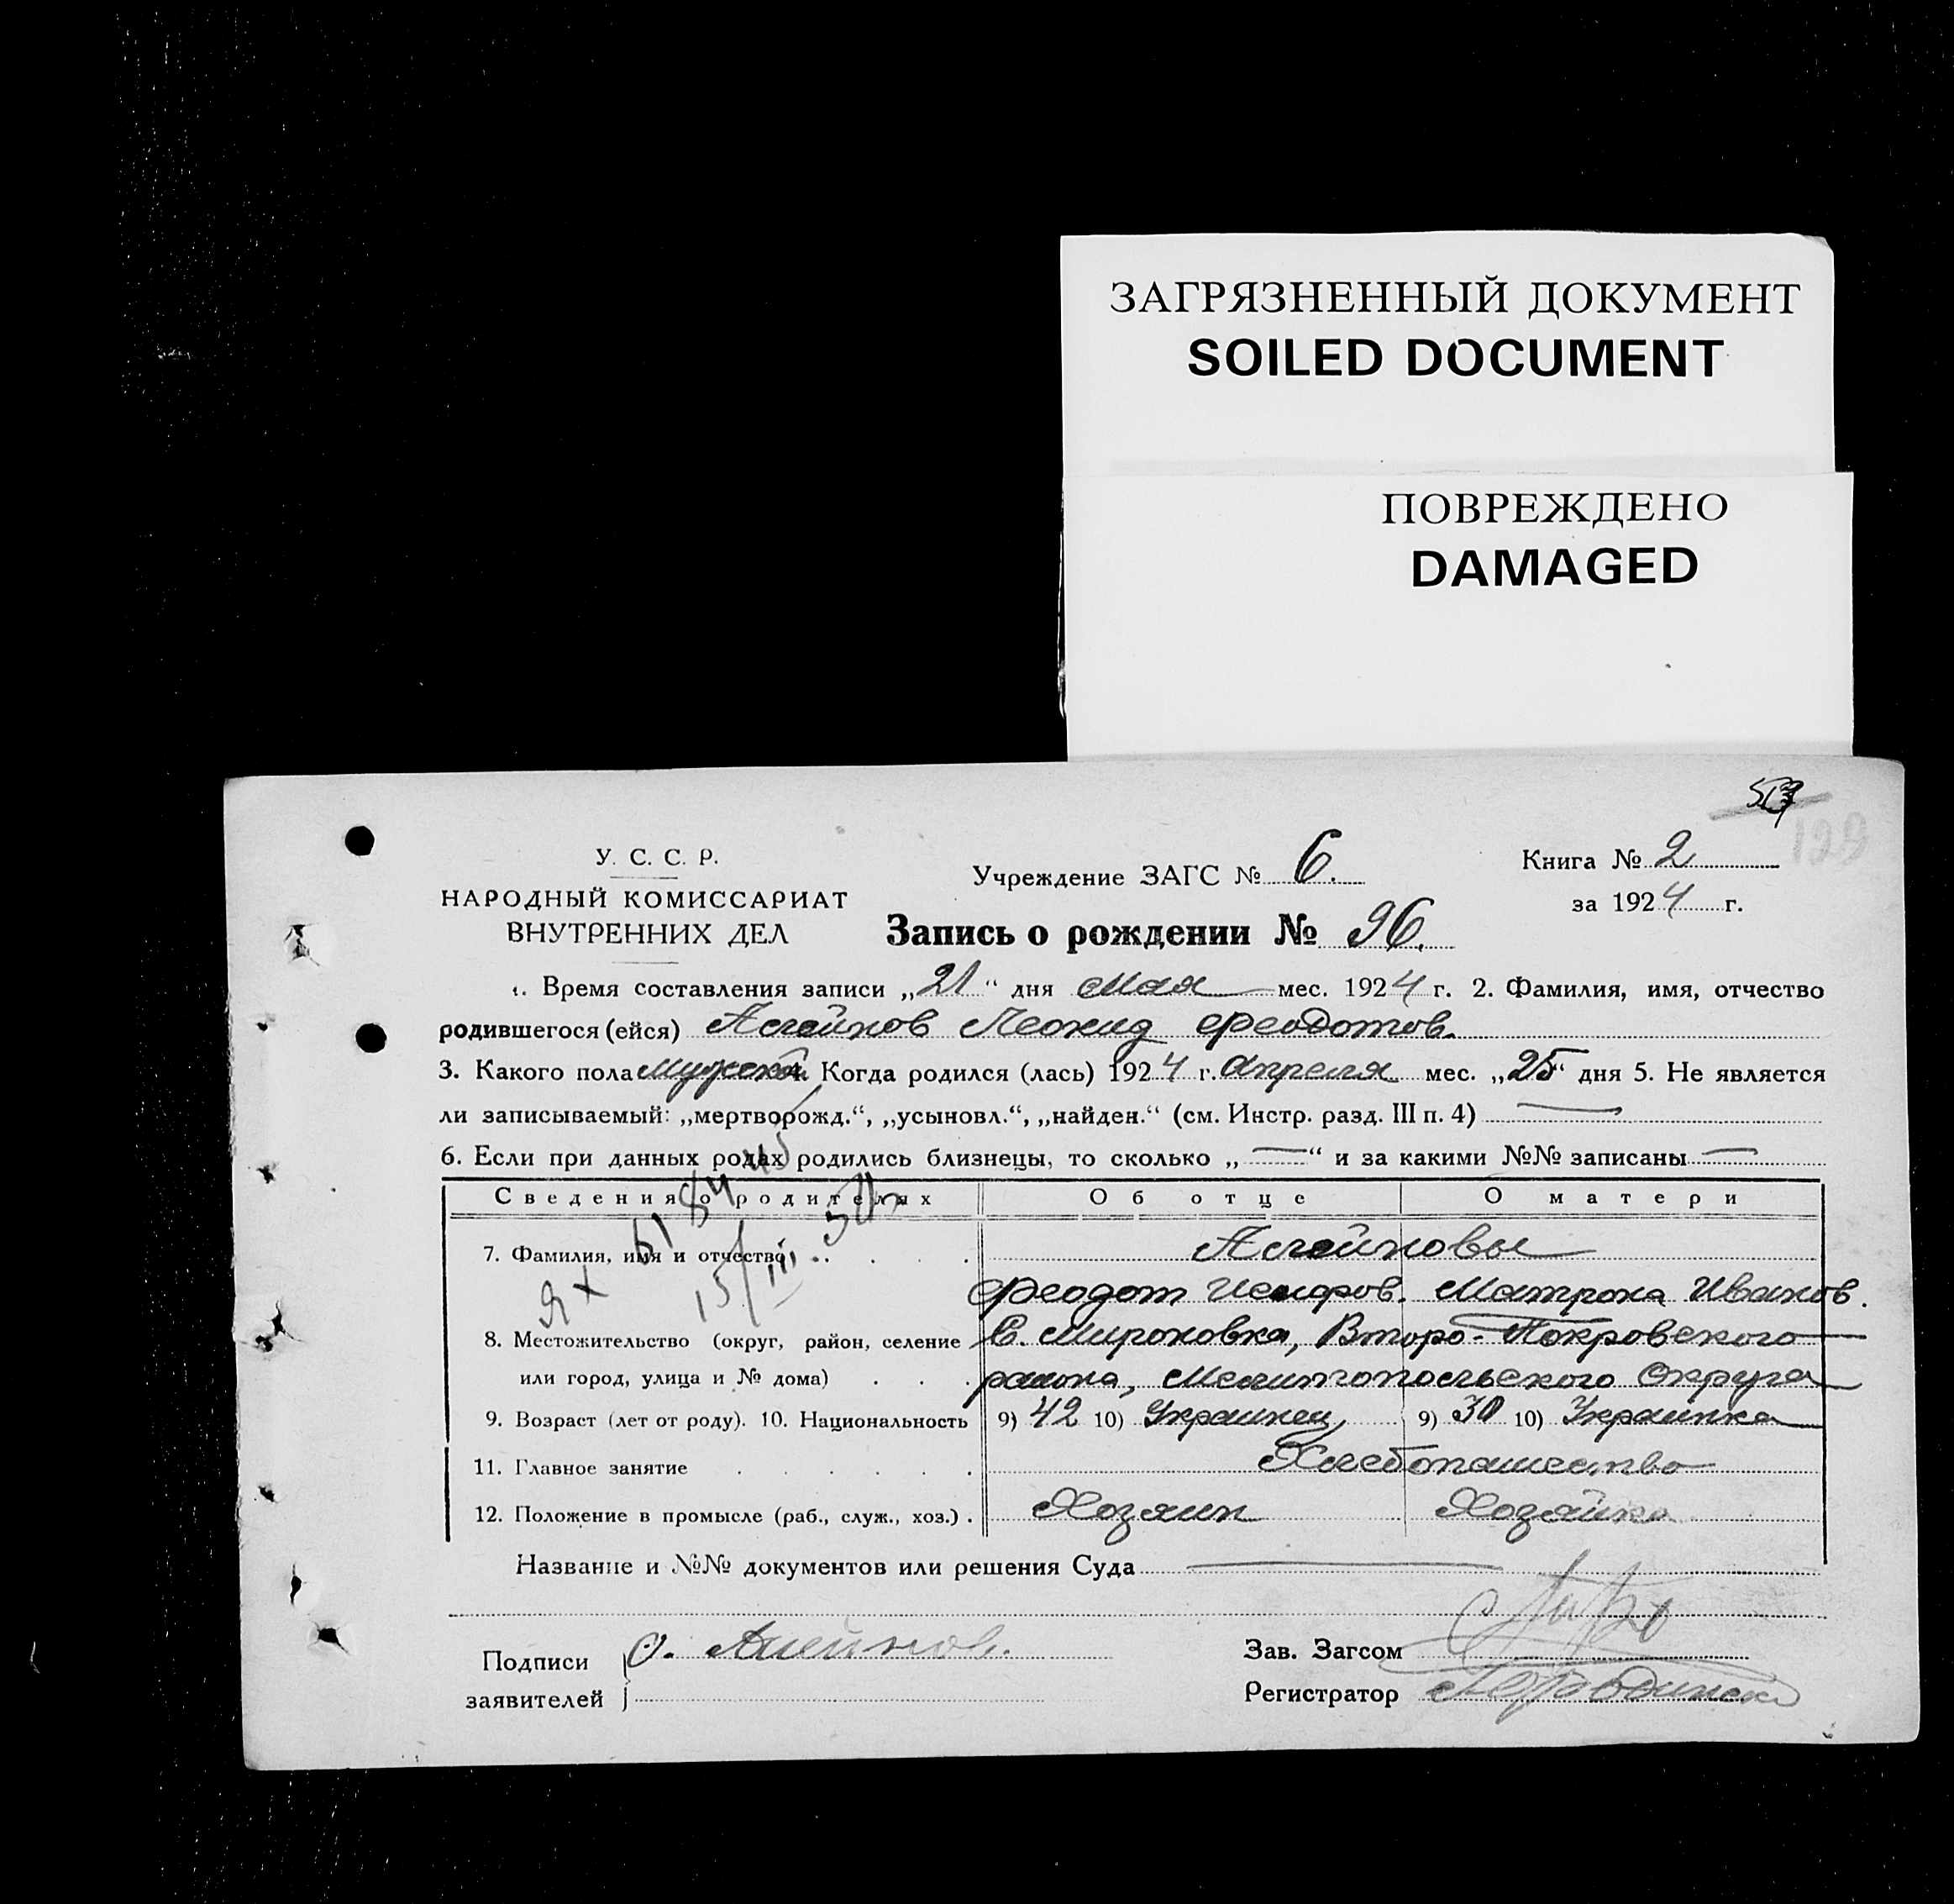 ЗАГРЯЗНЕННЫЙ ДОКУМЕНТ
SOILED DOCUMENT
ПОВРЕЖДЕНО
DAMAGED
129
У. С. С. Р.
НАРОДНЫЙ КОМИССАРИАТ
ВНУТРЕННИХ ДЕЛ
Учреждение ЗАГС № 6.
Книга № 2
за 1924 г.
Запись о рождении № 96.
1. Время составления записи „21“ дня Мая мес. 1924 г. 2. Фамилия, имя, отчество
родившегося (ейся) Алейнов Леонид Феодотов.
3. Какого пола Мужской 4. Когда родился (лась) 1924 г. Апреля мес. „25“ дня 5. Не является
ли записываемый: „мертворожд.“, „усыновл.“, „найден.“ (см. Инстр. разд. III п. 4) —
6. Если при данных родах родились близнецы, то сколько „—“ и за какими №№ записаны —
Сведения о родителях Об отце О матери
7. Фамилия, имя и отчество . . . . Алейновы
Феодот Исидоров. Матрона Иванов.
8. Местожительство (округ, район, селение С. Мироновка, Второ-Покровского
или город, улица и № дома) . . . района, Мелитопольского Округа
9. Возраст (лет от роду). 10. Национальность 9) 42 10) Украинец 9) 30 10) Украинка
11. Главное занятие . . . . . . Хлебопашество
12. Положение в промысле (раб., служ., хоз.) . Хозяин Хозяйка
15/III
Название и №№ документов или решения Суда —
Подписи
заявителей
Алейнов.
Зав. Загсом
Регистратор